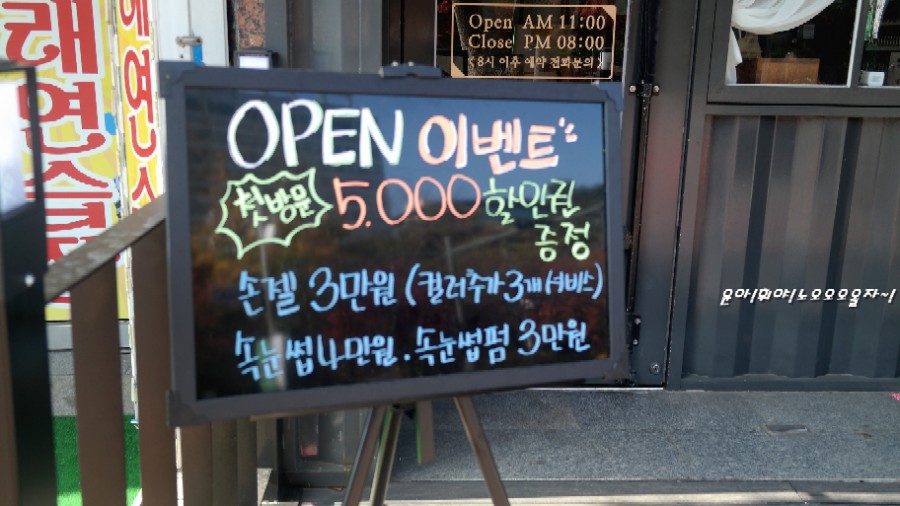 Open AM 11:00
Close PM 08:00
<8시 이후 예약 전화문의>
OPEN 이벤트
첫방문 5,000 할인권
증정
손젤 3만원 (컬러추가 3개 서비스)
속눈썹 4만원. 속눈썹펌 3만원
래연스